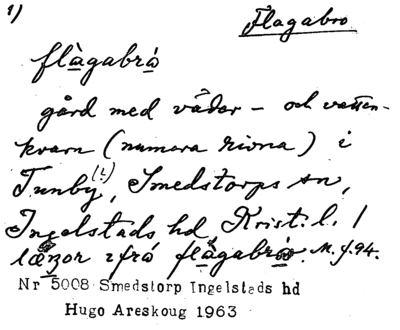 1)
Flagabro
flàgabró
gård med väder- och vatten-
kvarn (numera rivna) i
Tunby(?), Smedstorps sn,
Ingelstads hd, Krist. l. /
ifrå flàgabró. M. f. 94.
Nr 5008 Smedstorp Ingelstads hd
Hugo Areskoug 1963